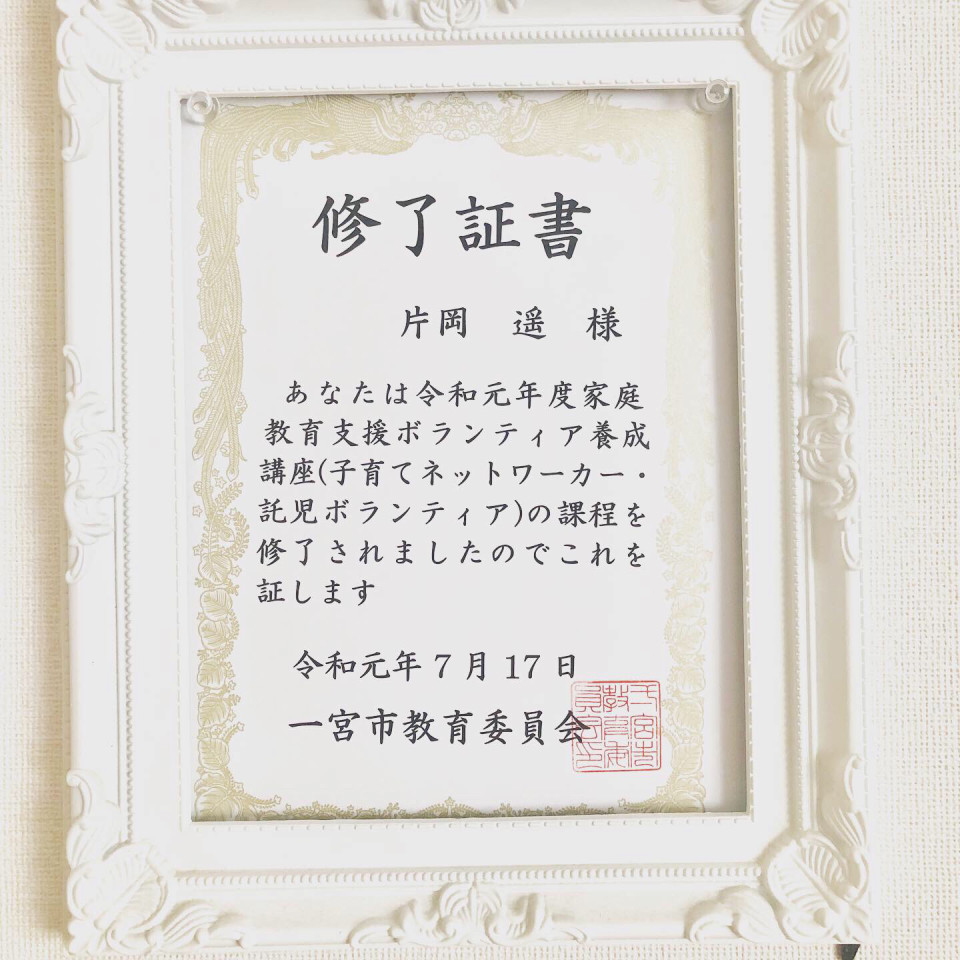 修了証書
片岡　遥　様
あなたは令和元年度家庭
教育支援ボランティア養成
講座(子育てネットワーカー・
託児ボランティア)の課程を
修了されましたのでこれを
証します
令和元年7月17日
一宮市教育委員会